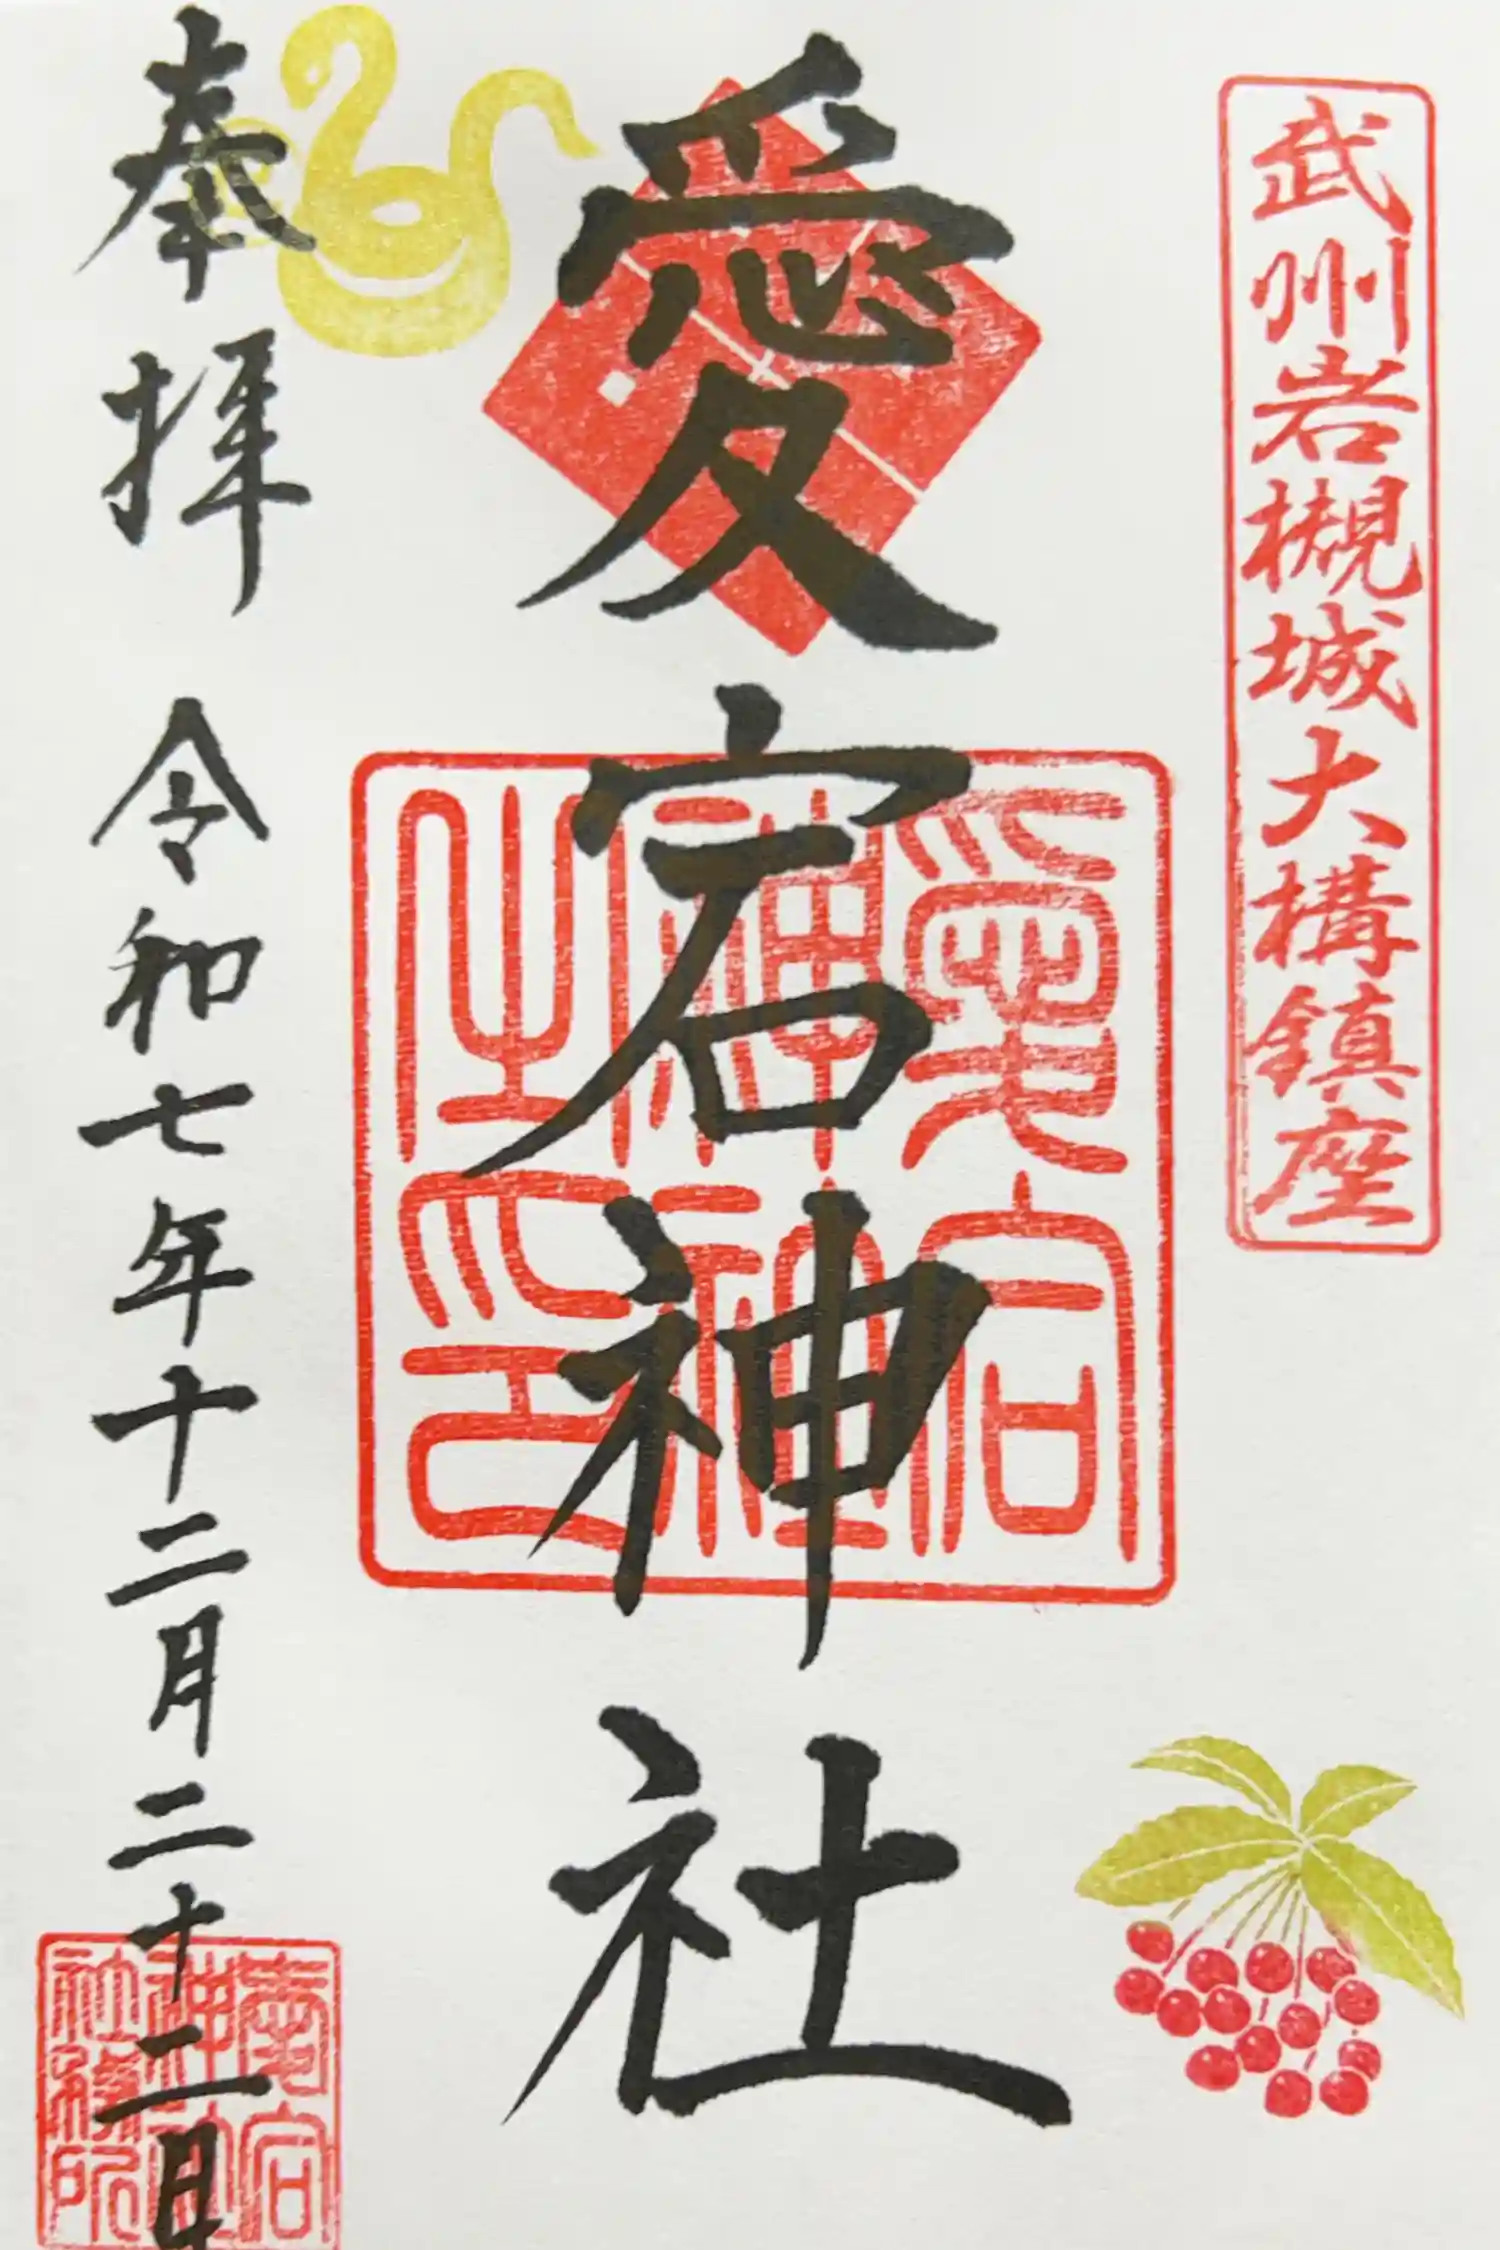 武州岩槻城大構鎮座
愛宕神社
愛宕
神社
之印
奉拝
令和七年十二月二十二日
愛宕
神社
社務所